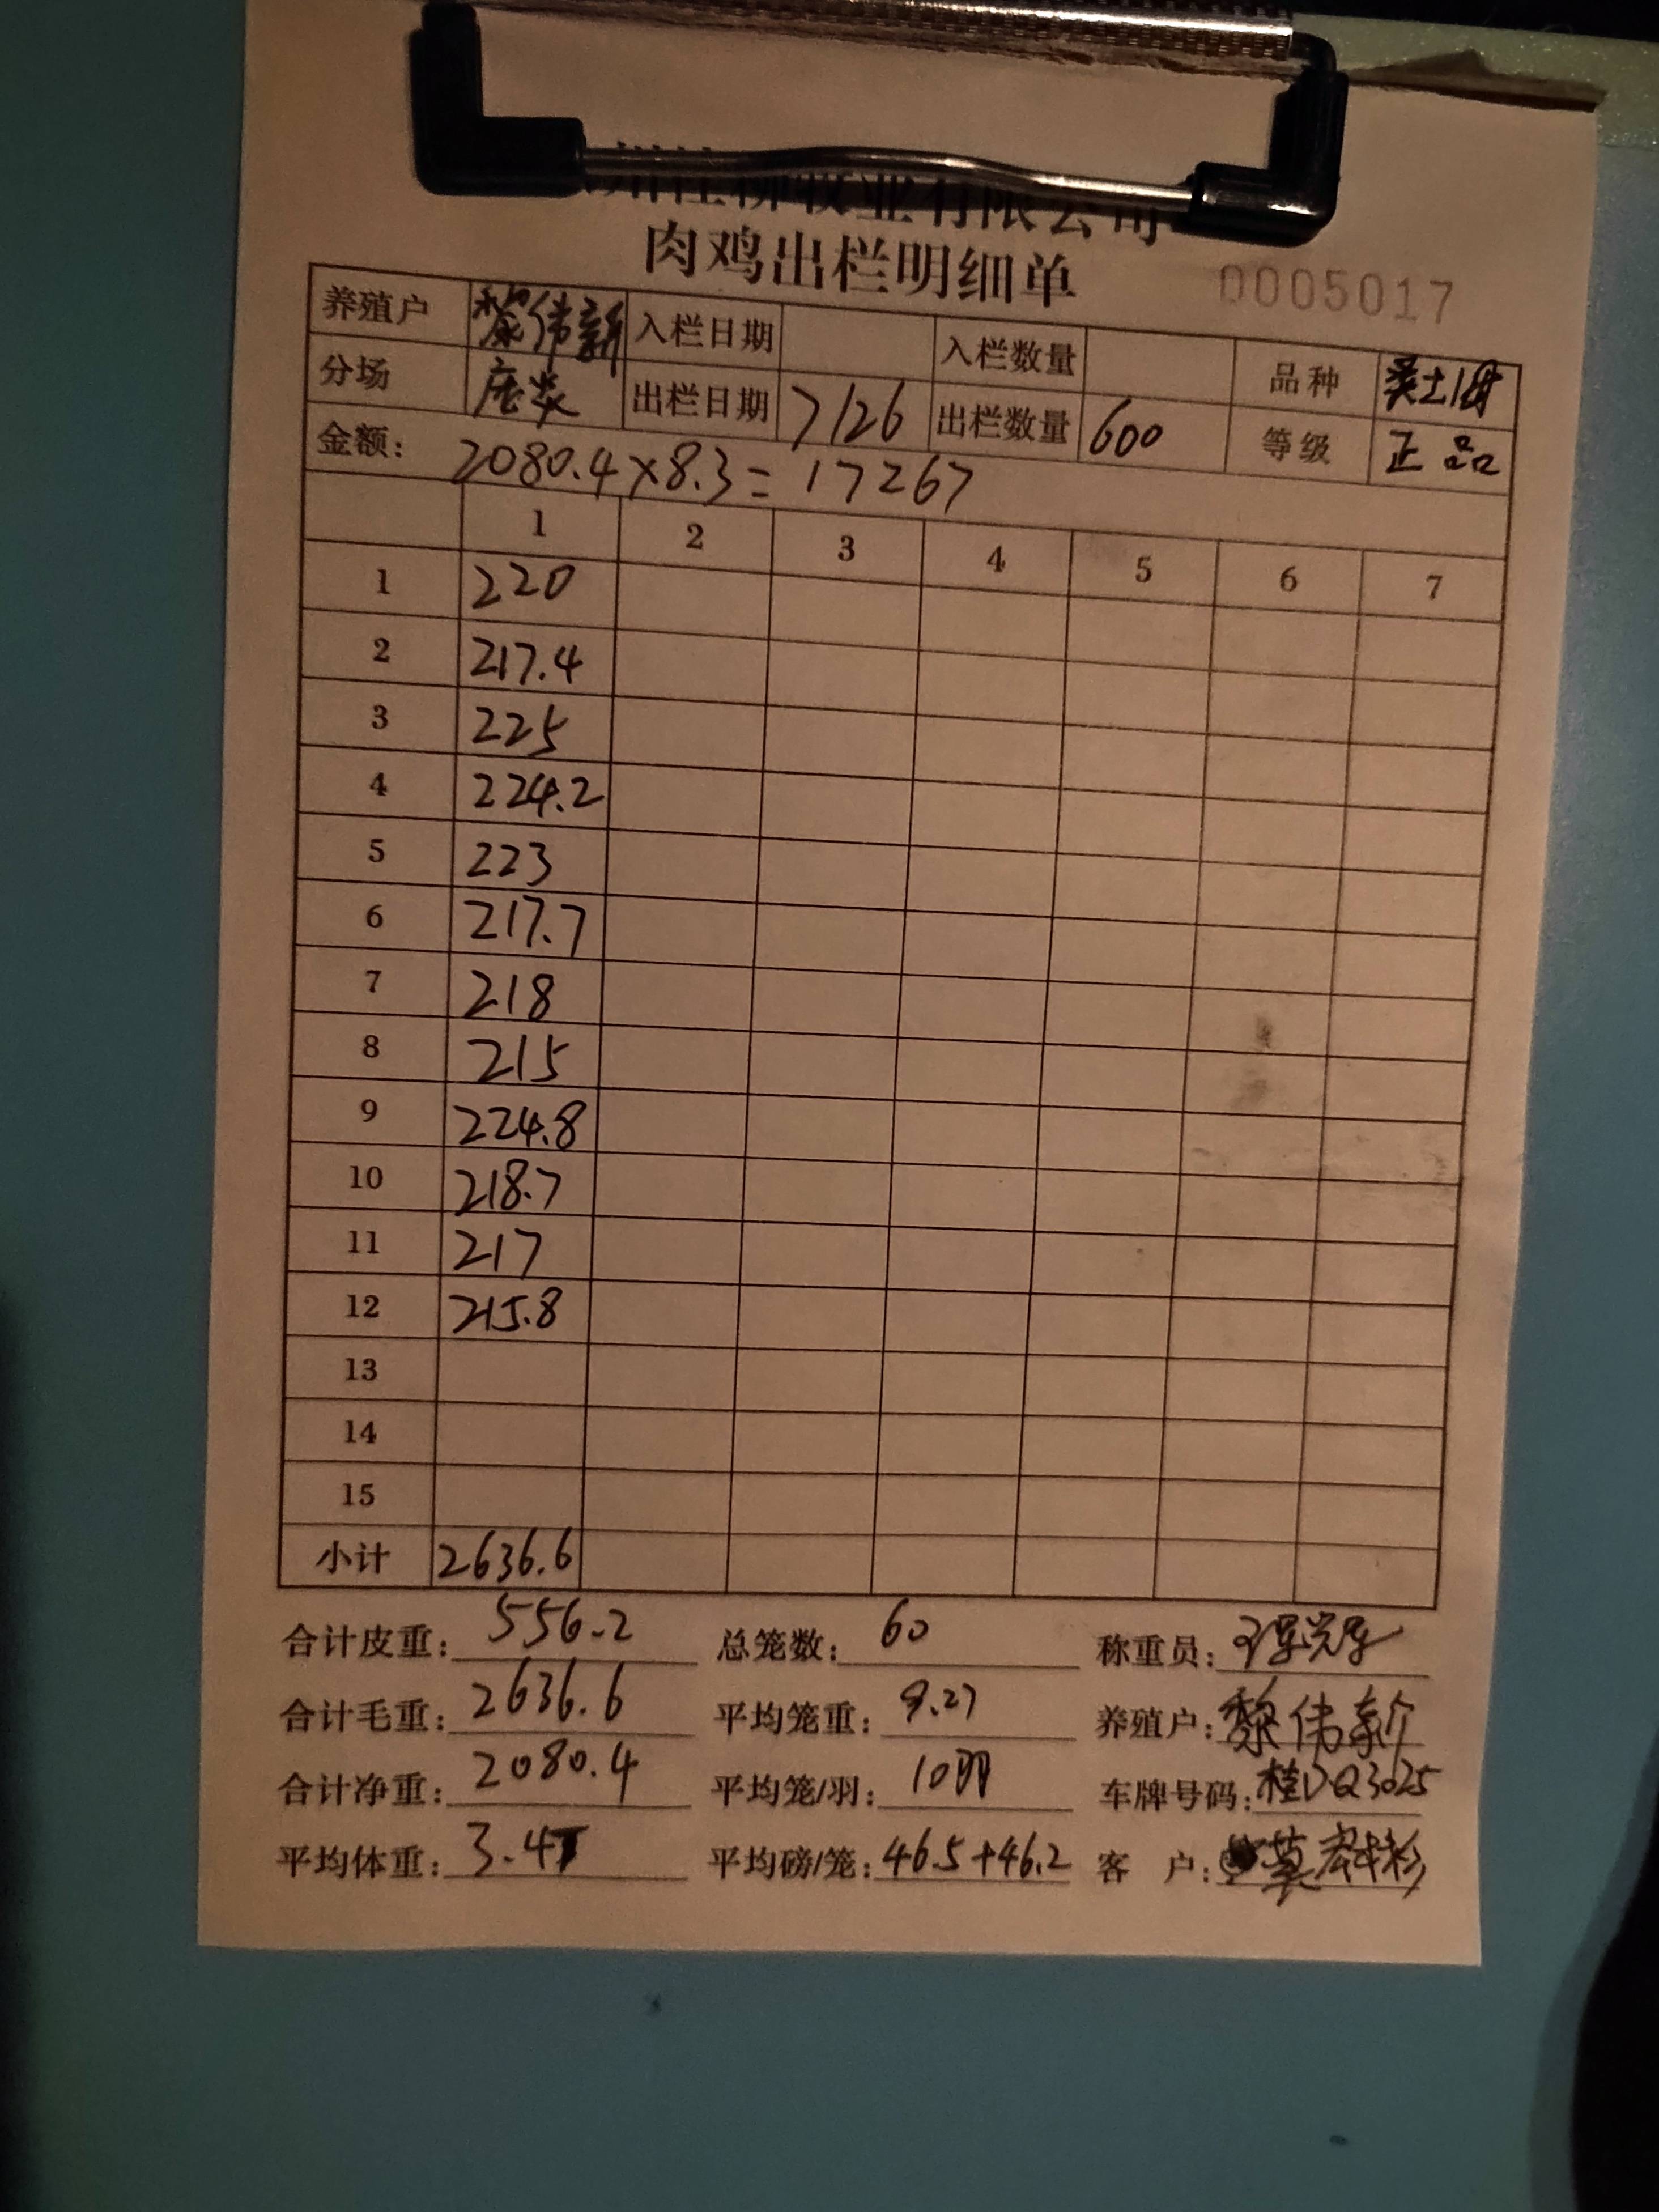 州桂柳牧业有限公司
肉鸡出栏明细单
0005017
养殖户 黎伟新 入栏日期 入栏数量 品种
分场 出栏日期 7/26 出栏数量 600 等级 正品
金额: 2080.4×8.3=17267
1 2 3 4 5 6 7
1 220
2 217.4
3 225
4 224.2
5 223
6 217.7
7 218
8 215
9 224.8
10 218.7
11 217
12 215.8
13
14
15
小计 2636.6
合计皮重: 556.2 总笼数: 60 称重员:
合计毛重: 2636.6 平均笼重: 9.27 养殖户: 黎伟新
合计净重: 2080.4 平均笼/羽: 10羽 车牌号码: 桂DQ3025
平均体重: 3.47 平均磅/笼: 46.5+46.2 客户: 莫